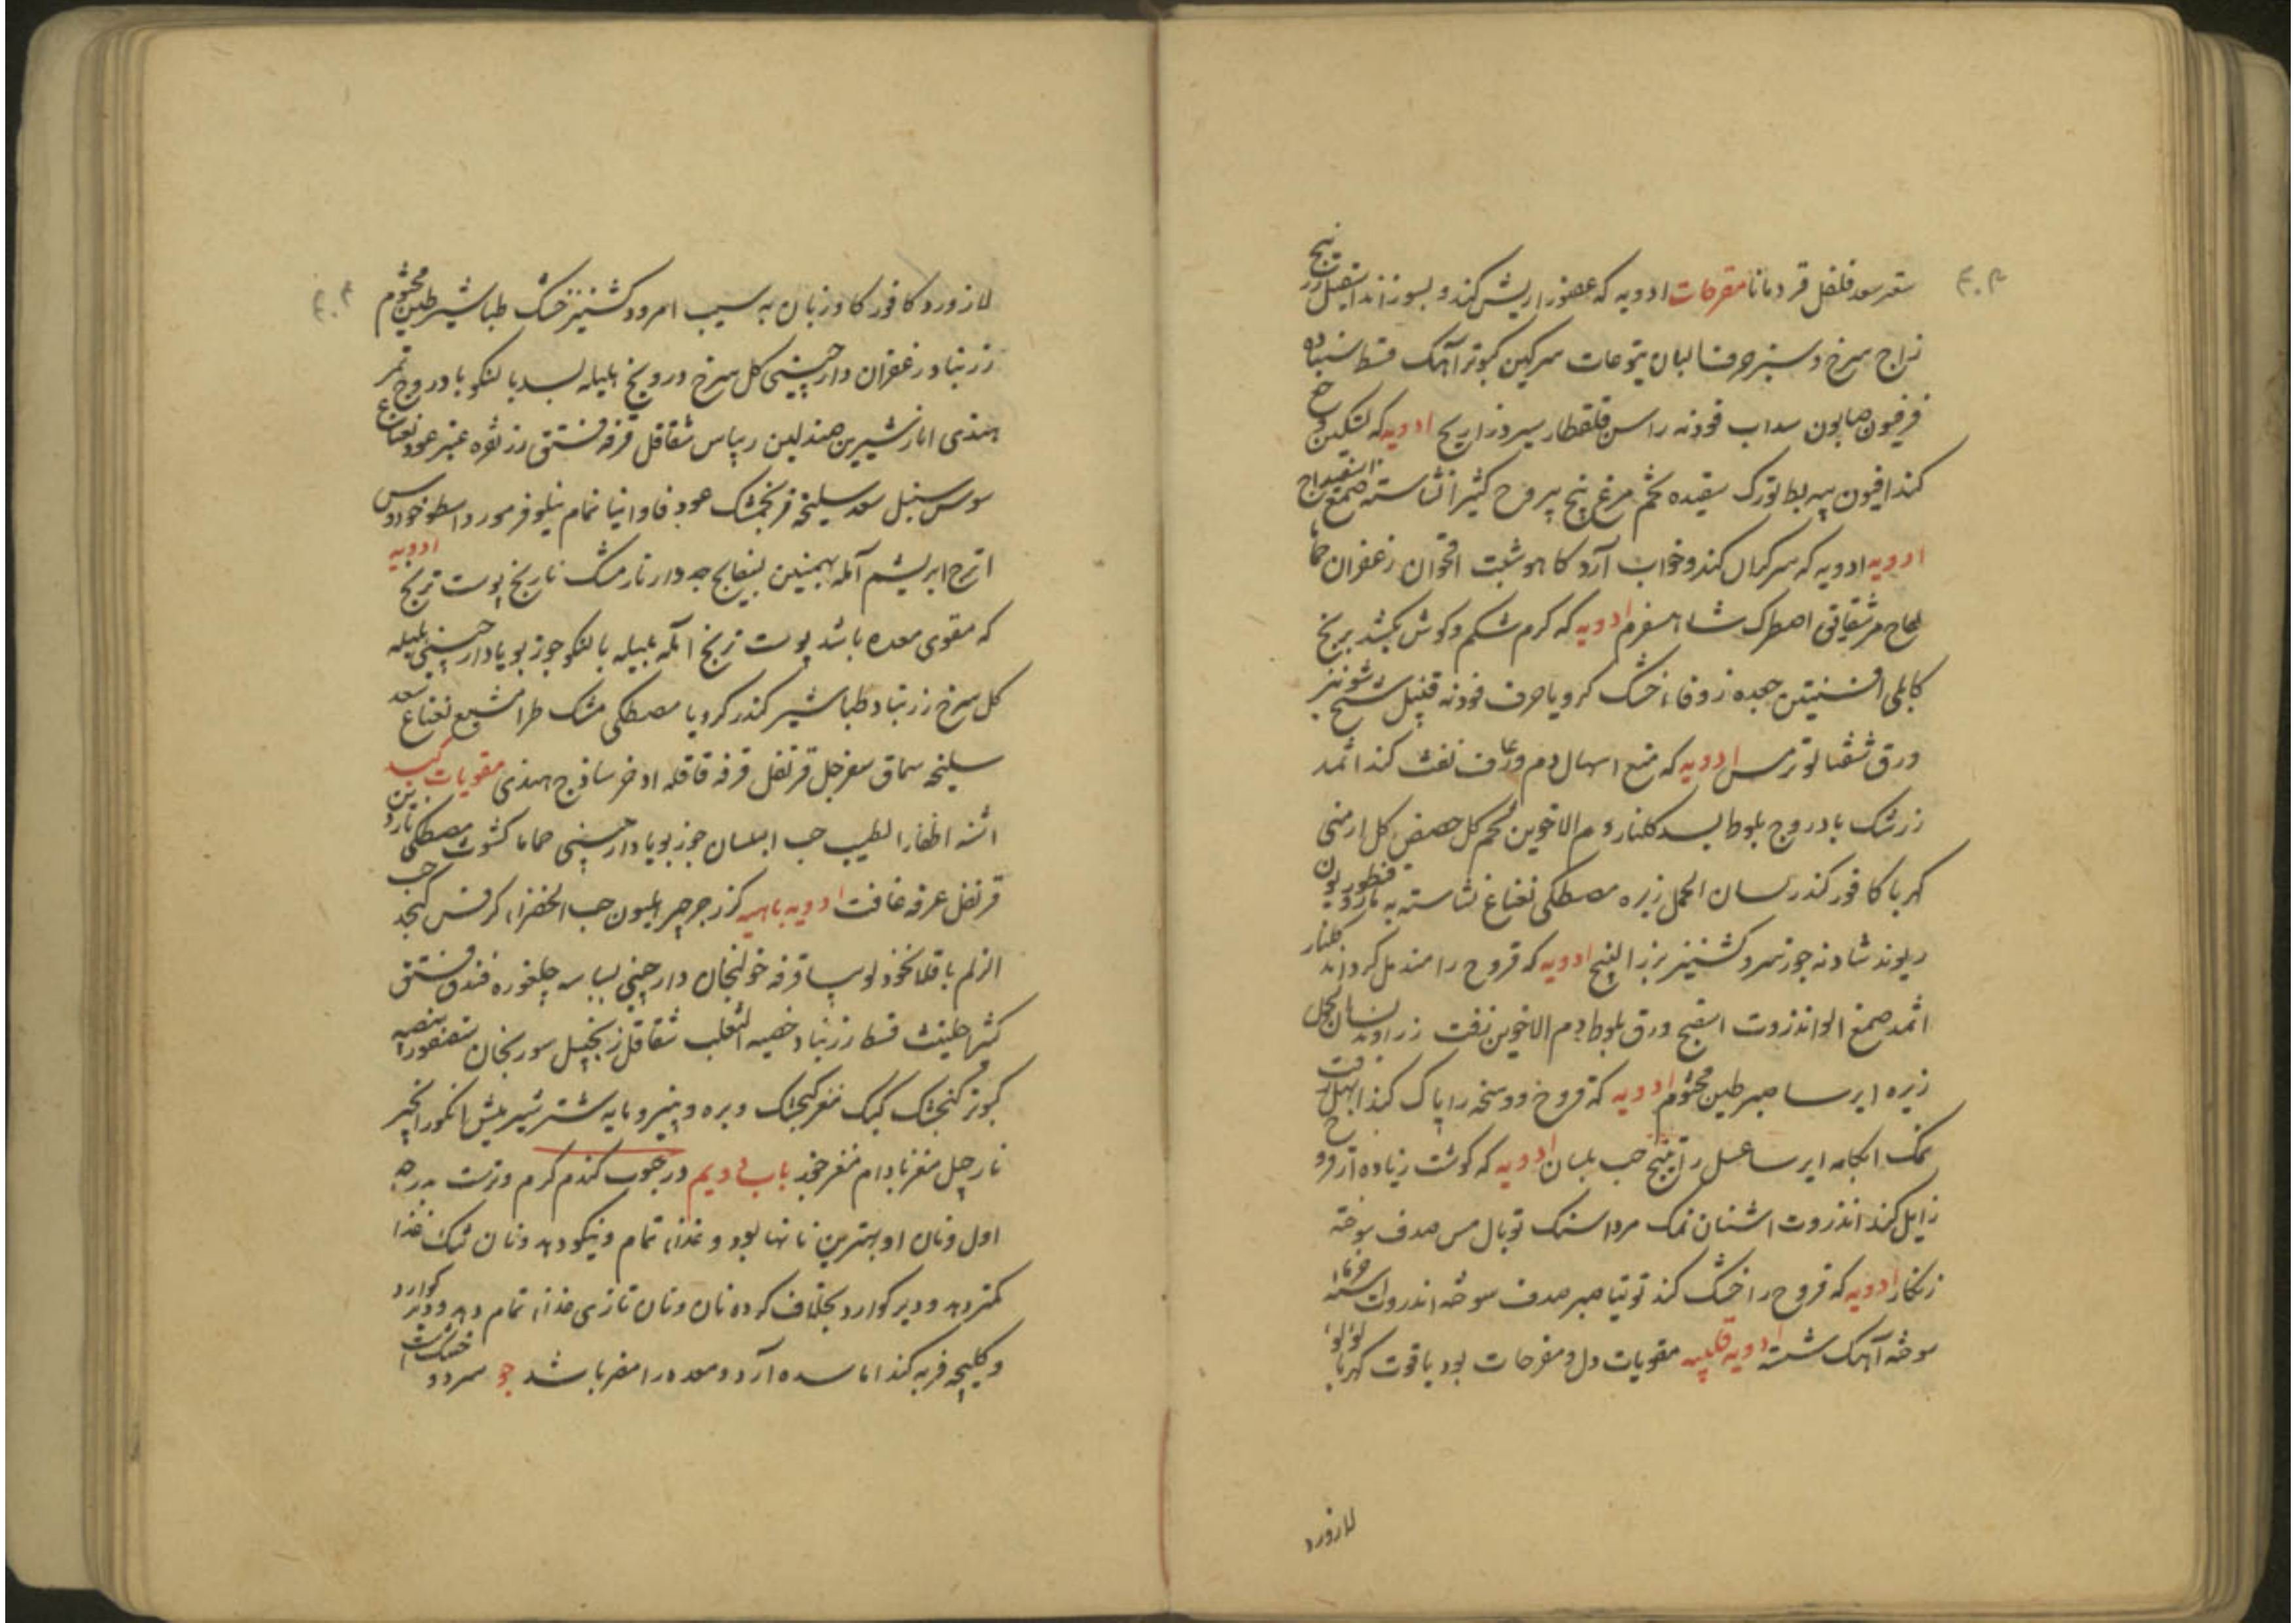 سعتر سعد فلفل قردمانا مقرحات ادویه که عضو را ریش کند و بسوزاند اسقیل زرنیخ
زاج سرخ و سبز حرف البان یتوعات سرکین کبوتر آهک قسط
فرفیون صابون سداب فودنه راسن قلقطار سیر ذراریح ادویه که تسکین وجع
کند افیون پیه بط تورک سفیده تخم مرغ بنج یبروح کثیرا نشاسته صمغ اسفیداج
ادویه ادویه که سر کران کند و خواب آرد کاهو شبت اقحوان زعفران حماما
لفاح مر شقایق اصطرک شاهسفرم ادویه که کرم شکم و کوش بکشد برنج
کابلی افسنتین جعده زوفاء خشک کرویا حرف فودنه قنبیل شیح شونیز
ورق شفتالو ترمس ادویه که منع اسهال دم و رعاف نفث کند اثمد
زرشک بادروج بلوط بسد کلنار دم الاخوین لحم کل حضض کل ارمنی
کهربا کافور کندر لسان الحمل زیره مصطکی نعناع نشاسته به مازو قنطوریون
ریوند شادنه جوز سرو کشنیز بزر البنج ادویه که قروح را مندمل کرداند کلنار
اثمد صمغ الو انذروت اسفنج ورق بلوط دم الاخوین زفت زراوند لسان الحمل
زیره ایرسا صبر طین مختوم ادویه که قروح و وسخه را پاک کند ابهل زفت
نمک ابکامه ایرسا عسل راتینج حب بلسان ادویه که کوشت زیاده از قروح
زایل کند انذروت اشنان نمک مرداسنک توبال مس صدف سوخته
زنکار ادویه که قروح را خشک کند توتیا صبر صدف سوخته انذروت
سوخته آهک شسته ادویه قلبیه مقویات دل و مفرحات بود یاقوت کهربا لؤلؤ
لازورد
لازورد کافور کاوزبان به سیب امرود کشنیز خشک طباشیر طین مختوم
زرنباد زعفران دارچینی کل سرخ درونج هلیله بسد بالنکو بادروج تمر
هندی انار شیرین صندلین ریباس شقاقل قرفه فستق زر نقره عنبر عود نعناع
سوس سنبل سعد سلیخه فرنجمشک عود فاوانیا نمام نیلوفر مورد اسطوخودوس
اترج ابریشم آمله بهمنین بسفایج جدوار نارمشک نارنج پوست ترنج ادویه
که مقوی معده باشد پوست ترنج آمله بلیله بالنکو جوز بویا دارچینی هلیله
کل سرخ زرنباد طباشیر کندر کرویا مصطکی مشک طرامشیع نعناع سعد
سلیخه سماق سفرجل قرنفل قرفه قاقله اذخر ساذج هندی مقویات کبد
اشنه اظفار الطیب حب البلسان جوز بویا دارچینی حماما کشوث مصطکی
قرنفل عرفه غافت ادویه باهیه کزر جرجیر هلیون حب الخضراء کرفس کنجد حب
الزلم باقلا نخود لوبیا قرفه خولنجان دارچینی بسباسه چلغوزه فندق فستق
کثیرا حلتیت قسط زرنباد خصیه الثعلب شقاقل زنجبیل سورنجان سقنقور بیضه
کبوتر کنجشک کبک مغز کنجشک و بره و پنیرومایه شتر شیر میش انکور انجیر
نارجیل مغز بادام مغز جوز باب دویم در حبوب کندم کرم و ترست بدرجه
اول و نان او بهترین نانها بود و غذاء تمام و نیکو دهد و نان خشک غذا
کمتر دهد و دیر کوارد بخلاف کرده نان و نان تازی غذاء تمام دهد و دیر کوارد
و کلیچه فربه کند اما سده آرد و معده را مضر باشد جو سرد و خشک است